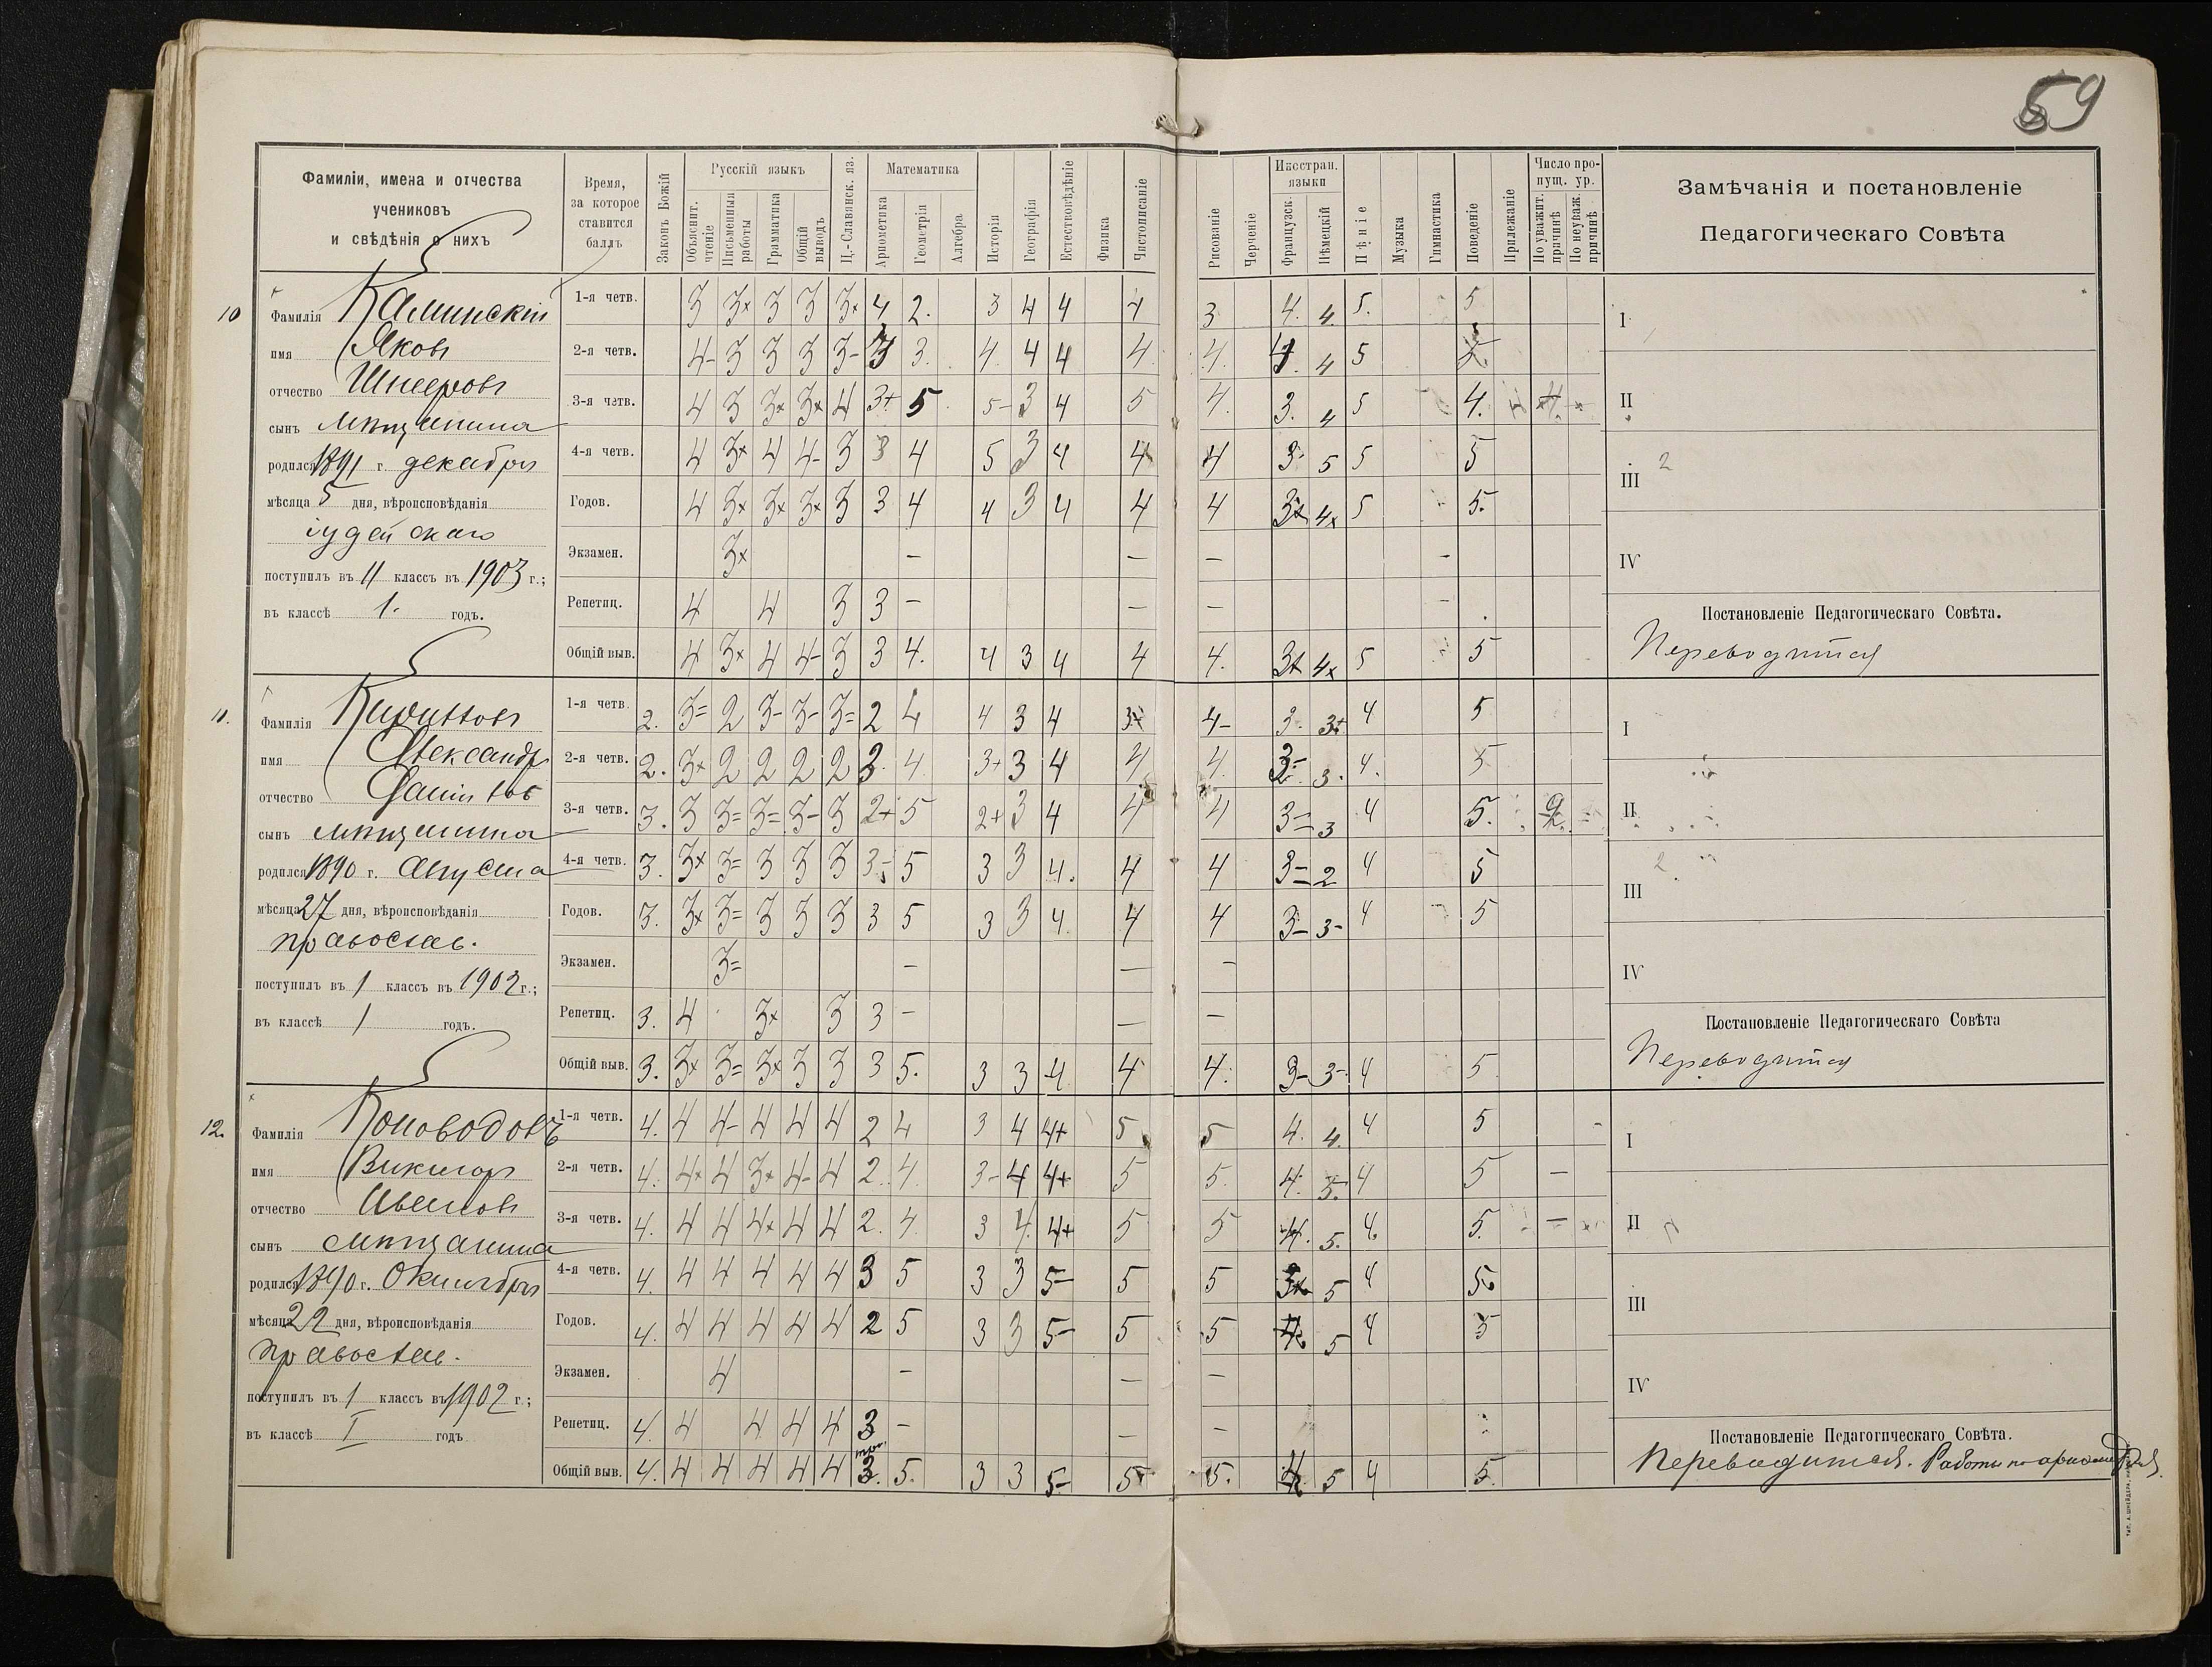 59
Фамиліи, имена и отчества
учениковъ
и свѣдѣнія о нихъ
Время,
за которое
ставится
баллъ
Законъ Божій
Русскій языкъ
Объяснит. чтеніе
Письменныя работы
Грамматика
Общій выводъ
Ц.-Славянск. яз.
Математика
Ариѳметика
Геометрія
Алгебра
Исторія
Географія
Естествовѣдѣніе
Физика
Чистописаніе
Рисованіе
Черченіе
Иностран. языки
Французск.
Нѣмецкій
Пѣніе
Музыка
Гимнастика
Поведеніе
Прилежаніе
Число пропущ. ур.
По уважит. причинѣ
По неуваж. причинѣ
Замѣчанія и постановленіе
Педагогическаго Совѣта
10
Фамилія Калинскій
имя Яковъ
отчество Шнееровъ
сынъ мѣщанина
родился 1891 г. декабря
мѣсяца 5 дня, вѣроисповѣданія
іудейскаго
поступилъ въ II классъ въ 1903 г.;
въ классѣ 1. годъ.
1-я четв. 3 3+ 3 3 3+ 4 2. 3 4 4 4 3 4. 4. 5. 5
2-я четв. 4- 3 3 3 3- 3 3. 4. 4 4 4. 4. 4. 4 5
3-я четв. 4 3 3+ 3+ 4 3+ 5 5- 3 4 5 4. 3. 4 5 4.
4-я четв. 4 3+ 4 4- 3 3 4 5 3 4 4 4 3- 5 5 5
Годов. 4 3+ 3+ 3+ 3 3 4 4 3 4 4 4 3+ 4+ 5 5.
Экзамен. 3+ — — —
Репетиц. 4 4 3 3 — — —
Общій выв. 4 3+ 4 4- 3 3 4. 4 3 4 4 4. 3+ 4+ 5 5
I
II
III 2
IV
Постановленіе Педагогическаго Совѣта.
Переводится
11.
Фамилія
имя Александръ
отчество
сынъ мѣщанина
родился 1890 г. Августа
мѣсяца 27 дня, вѣроисповѣданія
православ.
поступилъ въ 1 классъ въ 1902 г.;
въ классѣ 1 годъ.
1-я четв. 2. 3= 2 3- 3- 3= 2 4 4 3 4 3+ 4- 3- 3+ 4 5
2-я четв. 2. 3+ 2 2 2 2 3. 4 3+ 3 4 4 4 3- 3. 4. 5
3-я четв. 3. 3 3= 3= 3- 3 2+ 5 2+ 3 4 4 4 3= 3 4 5. 2
4-я четв. 3. 3+ 3= 3 3 3 3- 5 3 3 4. 4 4 3= 2 4 5
Годов. 3. 3+ 3= 3 3 3 3 5 3 3 4. 4 4 3- 3- 4 5
Экзамен. 3= — — —
Репетиц. 3. 4 3+ 3 3 — — —
Общій выв. 3. 3+ 3= 3+ 3 3 3 5. 3 3 4 4 4. 3- 3- 4 5
I
II
III 2
IV
Постановленіе Педагогическаго Совѣта
Переводится
12.
Фамилія Коноводовъ
имя Викторъ
отчество Ивановъ
сынъ мѣщанина
родился 1890 г. Октября
мѣсяца 22 дня, вѣроисповѣданія
православ.
поступилъ въ 1 классъ въ 1902 г.;
въ классѣ I годъ
1-я четв. 4. 4 4- 4 4 4 2 4 3 4 4+ 5 5 4. 4. 4 5
2-я четв. 4. 4+ 4 3+ 4- 4 2. 4. 3- 4 4+ 5 5. 4. 5. 4 5 —
3-я четв. 4. 4 4 4+ 4 4 2. 4. 3 4 4+ 5 5 4. 5. 4. 5. —
4-я четв. 4. 4 4 4 4 4 3 5 3 3 5- 5 5 3+ 5 4 5
Годов. 4. 4 4 4 4 4 2 5 3 3 5- 5 5 4 5 4 5
Экзамен. 4 — — —
Репетиц. 4. 4 4 4 4 3 — — —
Общій выв. 4. 4 4 4 4 4 3. 5. 3 3 5- 5 5. 4 5 4 5.
I
II
III
IV
Постановленіе Педагогическаго Совѣта.
Переводится. Работа по ариѳметикѣ.